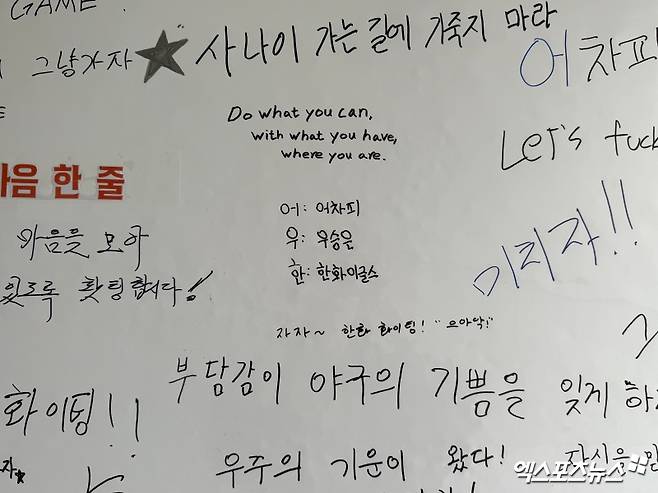 GAME
그냥가자 ★ 사나이 가는 길에 기죽지 마라
어차피
Do what you can,
with what you have,
where you are.
Let's fuck
마음 한 줄
어: 어차피
우: 우승은
한: 한화이글스
마음을 모아
있도록 홧팅합시다!
이리자!!
자자~ 한화 화이팅! "으아악!"
부담감이 야구의 기쁨을 잊게 하
화이팅!!
우주의 기운이 왔다! 자신을 믿
엑스포츠뉴스